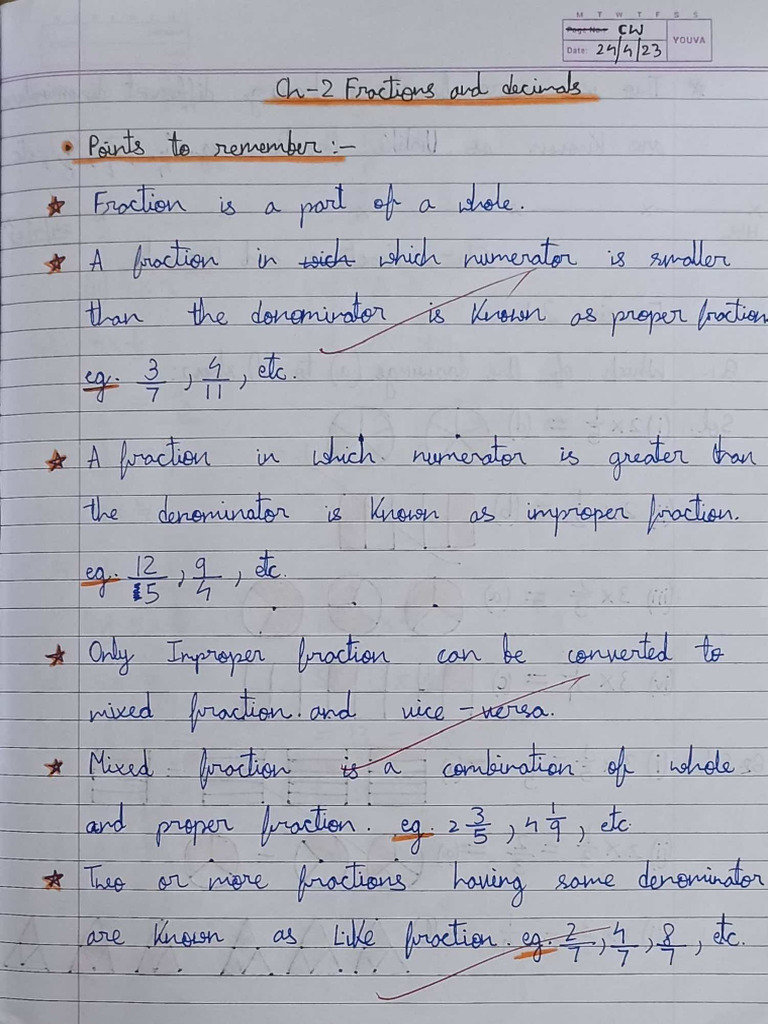 M T W T F S S
Page No.: CW
Date: 24/4/23
YOUVA
Ch-2 Fractions and decimals
• Points to remember :-
★ Fraction is a part of a whole.
★ A fraction in wich which numerator is smaller
than the donominator is Known as proper fraction
eg. 3/7, 4/11, etc.
★ A fraction in which numerator is greater than
the denominator is Known as improper fraction.
eg. 12/5, 9/4, etc.
★ Only Improper fraction can be converted to
mixed fraction and vice-versa.
★ Mixed fraction is a combination of whole
and proper fraction. eg. 2 3/5, 4 1/9, etc
★ Two or more fractions having same denominator
are Known as Like fraction. eg. 2/7, 4/7, 8/7, etc.